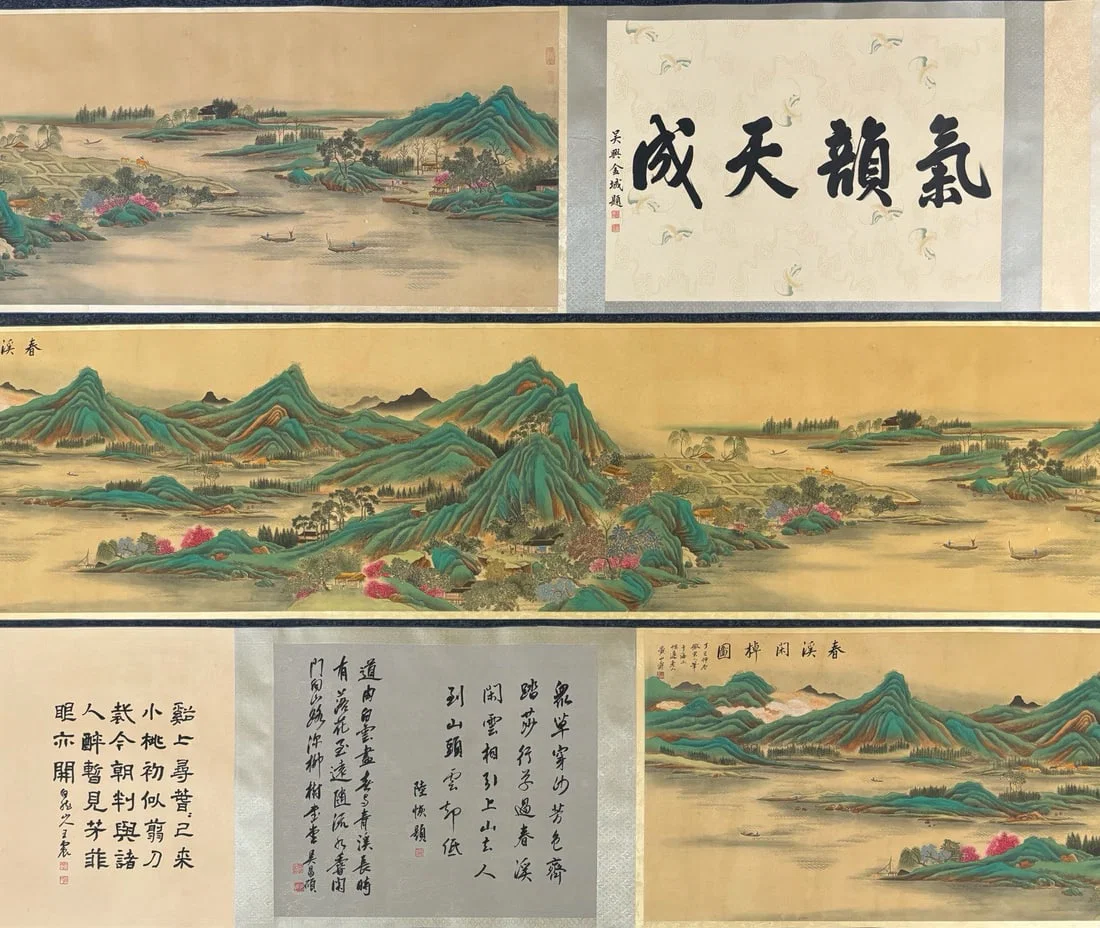 氣韻天成
吳興金城題
春溪
春溪閑棹圖
丁巳仲冬
黄山壽
衆草穿沙芳色齊
踏莎行草過春溪
閑雲相引上山去人
到山頭雲却低
陸恢題
道由白雲盡春與青溪長時
有落花至遠隨流水香閑
門向山路深柳
吳昌碩
谿上尋萅〻已來
小桃初似翦刀
裁今朝判與諸
人醉暫見芳菲
眼亦開
白龍山人王震